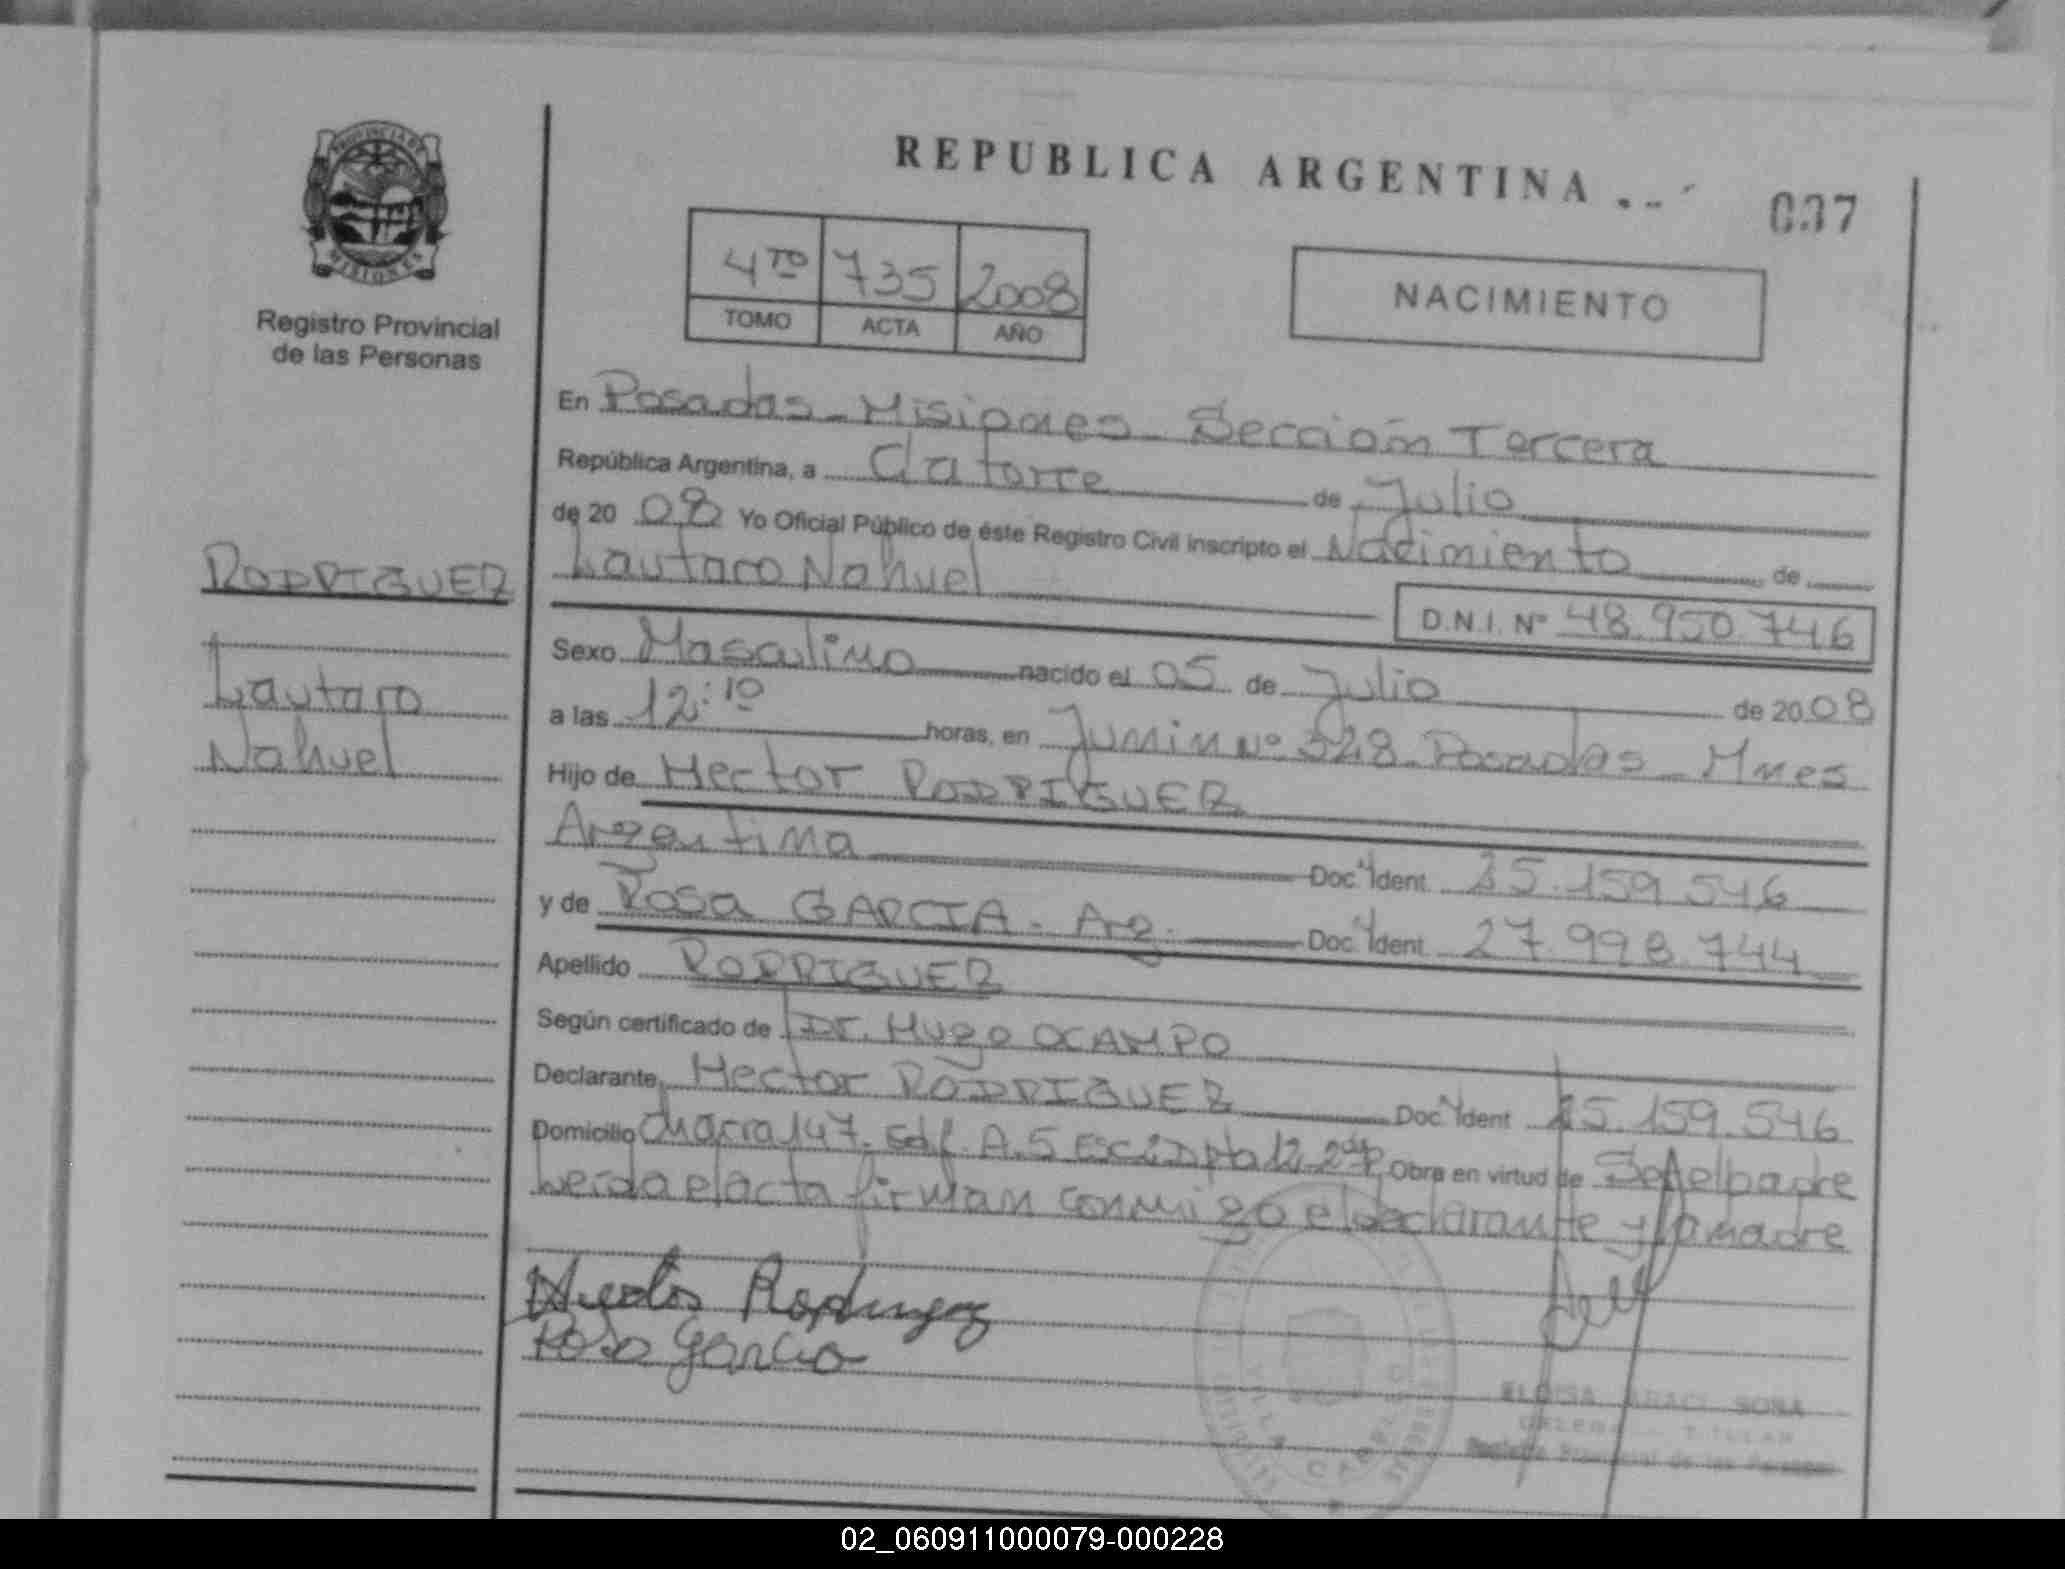 PROVINCIA DE
MISIONES
Registro Provincial
de las Personas
REPUBLICA ARGENTINA
037
4TO 735 2008
TOMO ACTA AÑO
NACIMIENTO
En Posadas - Misiones - Sección Tercera
República Argentina, a Catorce de Julio
de 20 08 Yo Oficial Público de éste Registro Civil inscripto el Nacimiento de
Lautaro Nahuel
D.N.I. Nº 48.950.746
Sexo Masculino nacido el 05 de Julio de 20 08
a las 12:10 horas, en Junin Nº 528 - Posadas - Mnes
Hijo de Hector RODRIGUEZ
Argentina Doc. Ident. 25.159.546
y de Rosa GARCIA - Arg. Doc. Ident. 27.998.744
Apellido RODRIGUEZ
Según certificado de Dr. Hugo OCAMPO
Declarante Hector RODRIGUEZ Doc. Ident 25.159.546
Domicilio Chacra 147. Edif. A.5 Esc 2 Dpto 12 2do P. Obra en virtud de Ser el padre
Leída el acta firman conmigo el declarante y la madre
Rodriguez
Rosa Garcia
RODRIGUEZ
Lautaro
Nahuel
VILLA CABELLO
ELOISA ARACI SOSA
TITULAR
Registro Provincial de las Personas
02_060911000079-000228